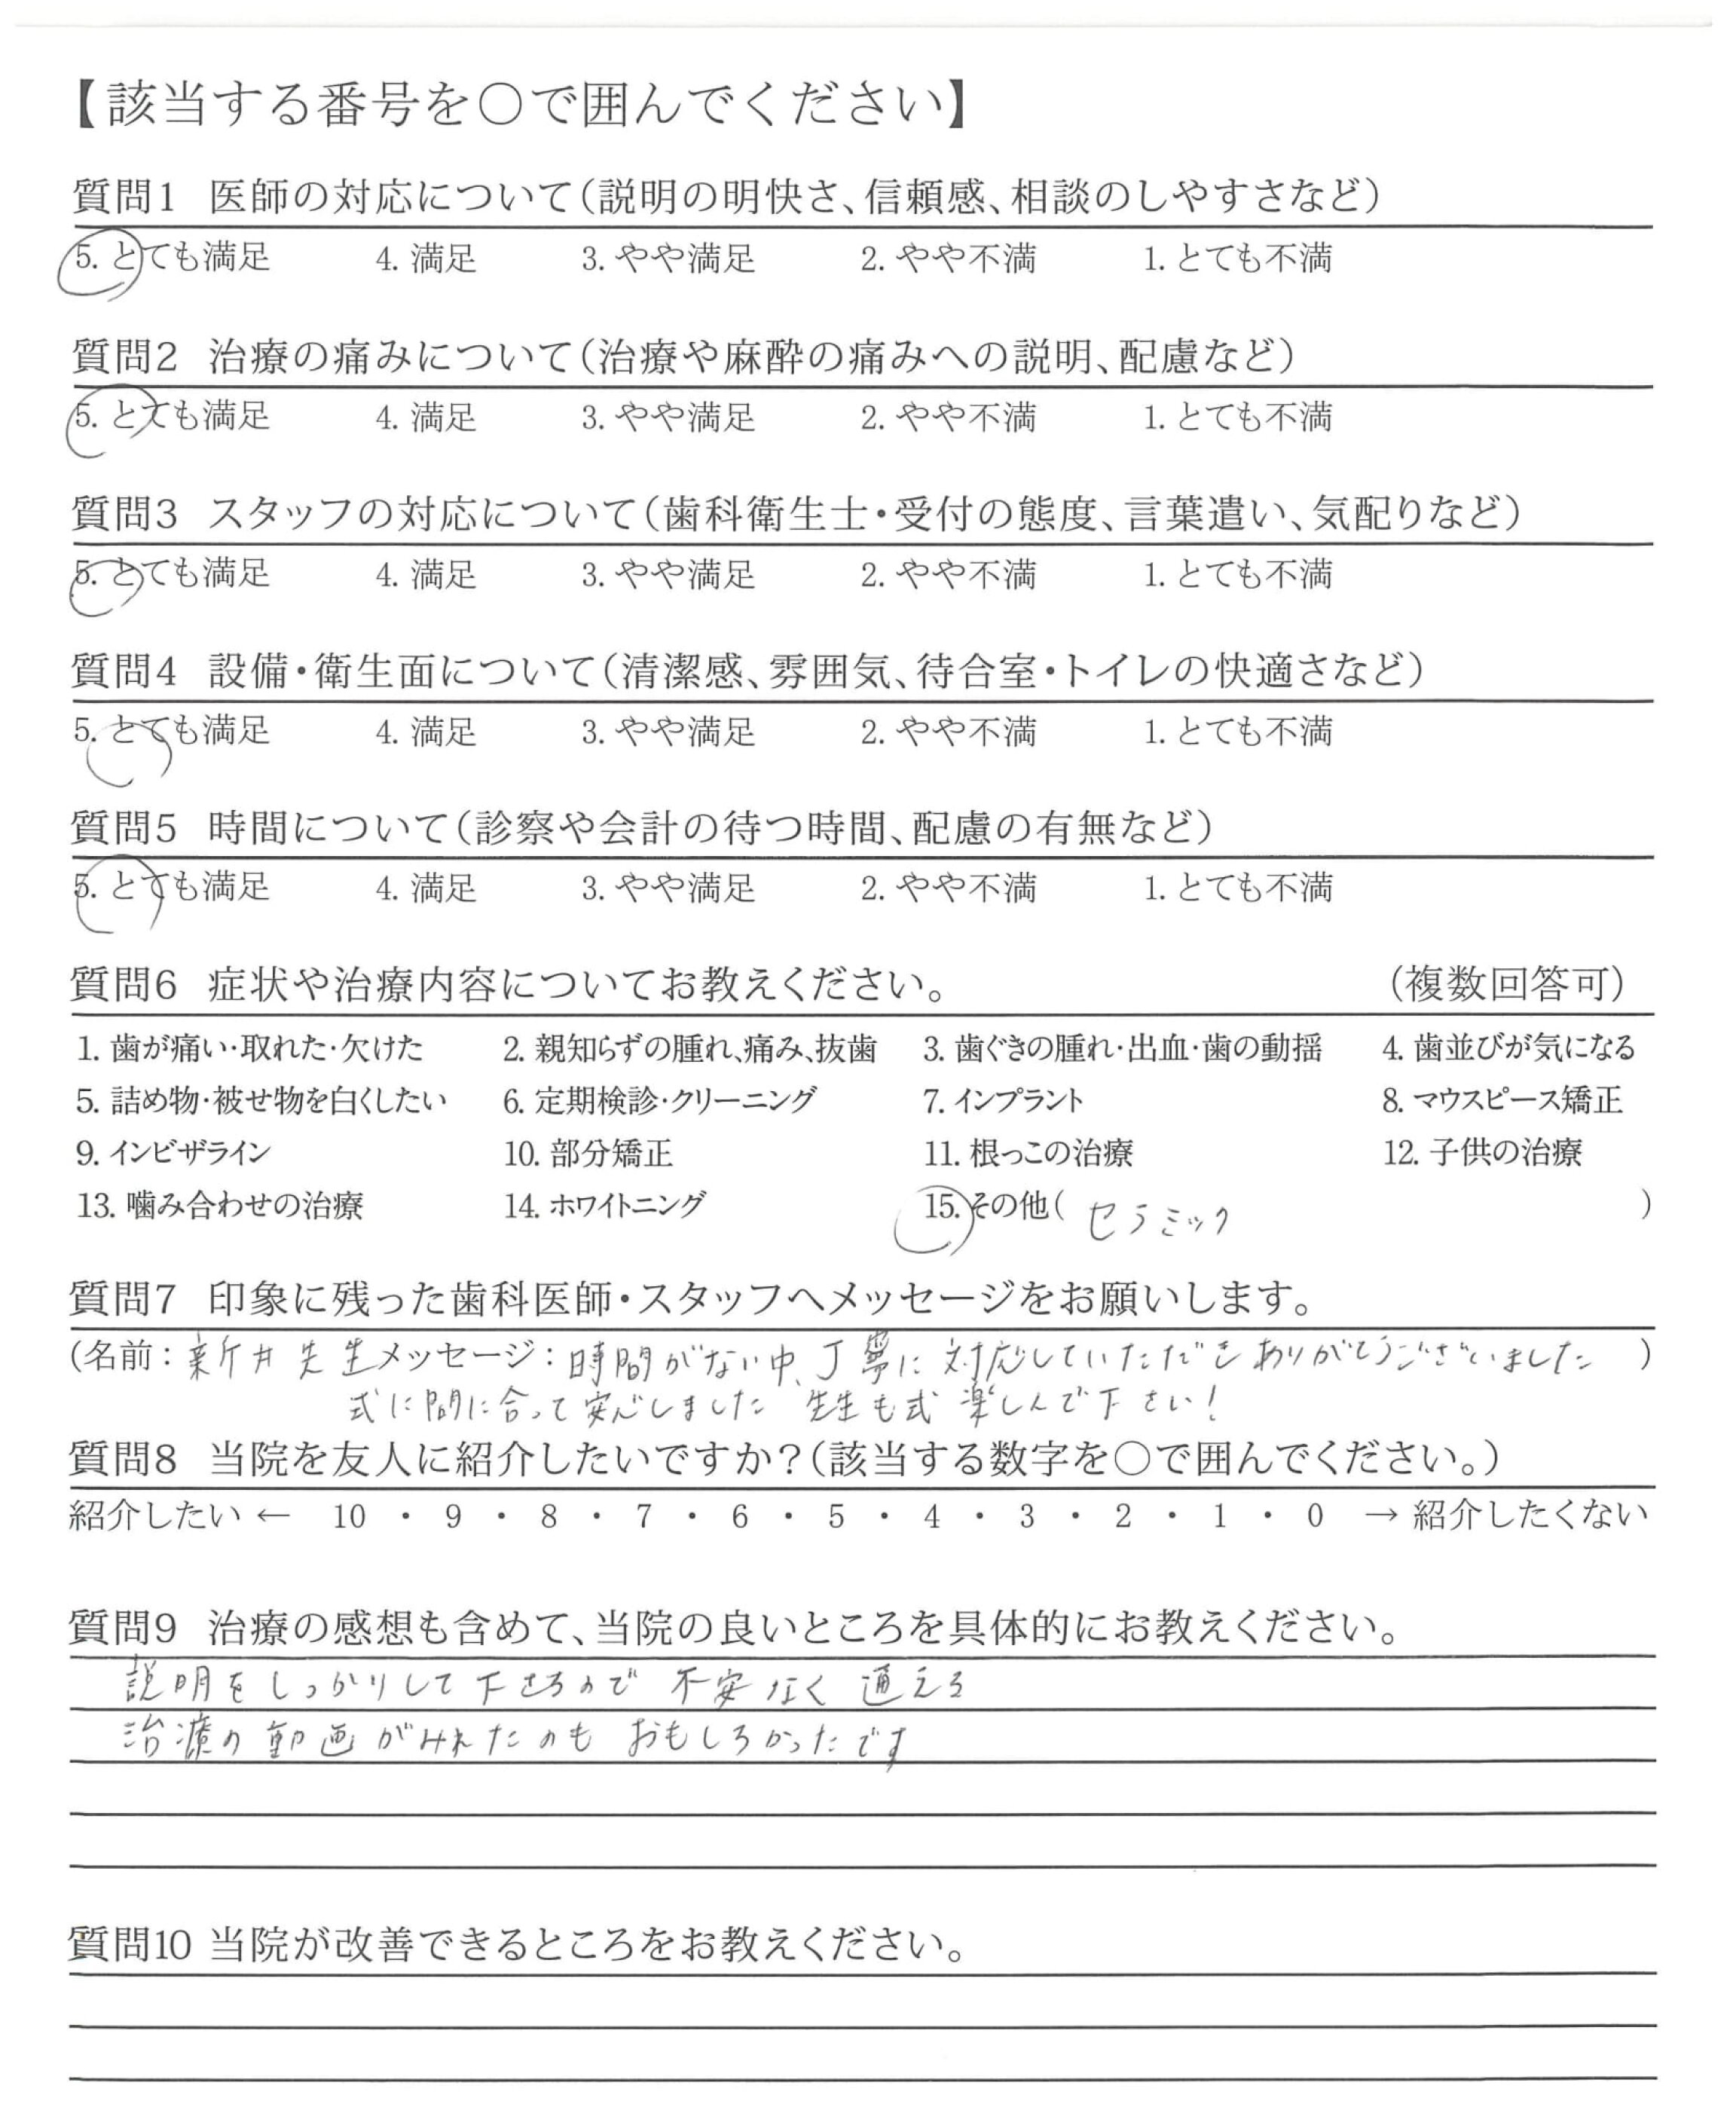 【該当する番号を○で囲んでください】
質問1 医師の対応について(説明の明快さ、信頼感、相談のしやすさなど)
5. とても満足 4. 満足 3. やや満足 2. やや不満 1. とても不満
質問2 治療の痛みについて(治療や麻酔の痛みへの説明、配慮など)
5. とても満足 4. 満足 3. やや満足 2. やや不満 1. とても不満
質問3 スタッフの対応について(歯科衛生士・受付の態度、言葉遣い、気配りなど)
5. とても満足 4. 満足 3. やや満足 2. やや不満 1. とても不満
質問4 設備・衛生面について(清潔感、雰囲気、待合室・トイレの快適さなど)
5. とても満足 4. 満足 3. やや満足 2. やや不満 1. とても不満
質問5 時間について(診察や会計の待つ時間、配慮の有無など)
5. とても満足 4. 満足 3. やや満足 2. やや不満 1. とても不満
質問6 症状や治療内容についてお教えください。 (複数回答可)
1. 歯が痛い・取れた・欠けた 2. 親知らずの腫れ、痛み、抜歯 3. 歯ぐきの腫れ・出血・歯の動揺 4. 歯並びが気になる
5. 詰め物・被せ物を白くしたい 6. 定期検診・クリーニング 7. インプラント 8. マウスピース矯正
9. インビザライン 10. 部分矯正 11. 根っこの治療 12. 子供の治療
13. 噛み合わせの治療 14. ホワイトニング 15. その他( セラミック )
質問7 印象に残った歯科医師・スタッフへメッセージをお願いします。
(名前: 新井先生 メッセージ: 時間がない中、丁寧に対応していただきありがとうございました )
式に間に合って安心しました 先生も式楽しんで下さい!
質問8 当院を友人に紹介したいですか?(該当する数字を○で囲んでください。)
紹介したい ← 10 ・ 9 ・ 8 ・ 7 ・ 6 ・ 5 ・ 4 ・ 3 ・ 2 ・ 1 ・ 0 → 紹介したくない
質問9 治療の感想も含めて、当院の良いところを具体的にお教えください。
説明をしっかりして下さるので 不安なく通える
治療の動画がみれたのも おもしろかったです
質問10 当院が改善できるところをお教えください。